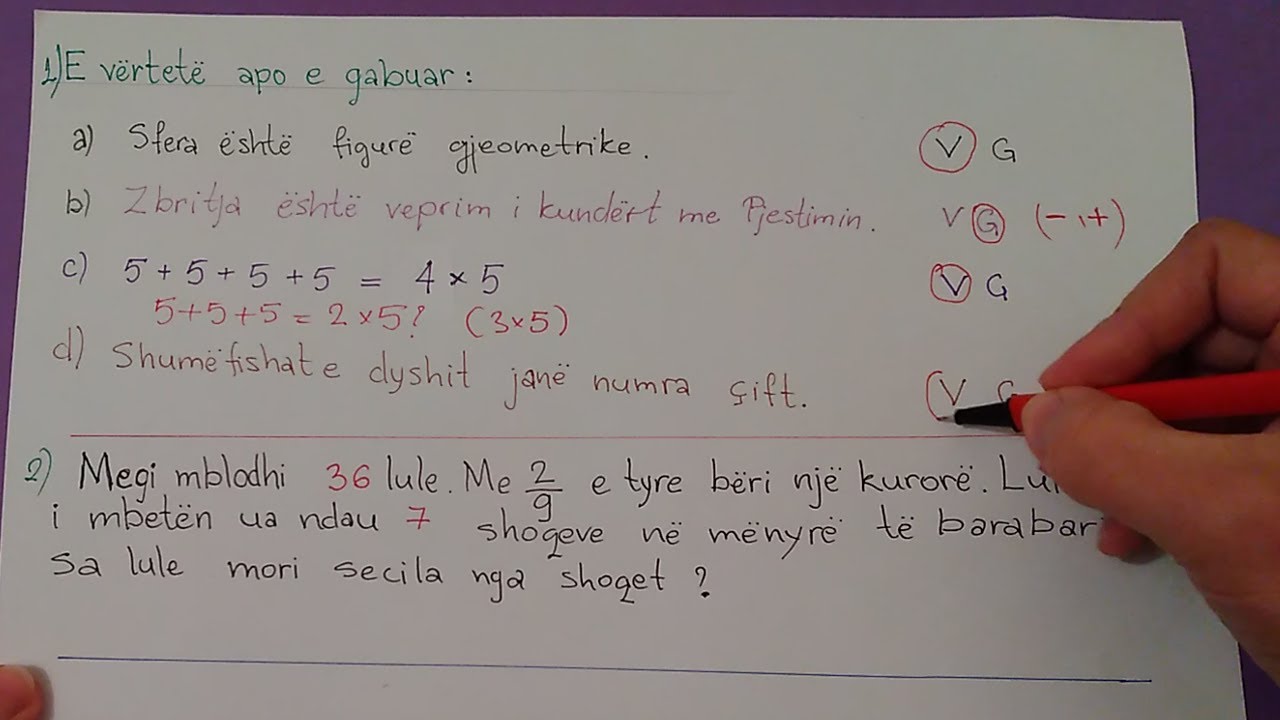 1) E vërtetë apo e gabuar:
a) Sfera është figurë gjeometrike. V G
b) Zbritja është veprim i kundërt me Pjestimin. V G (-,+)
c) 5 + 5 + 5 + 5 = 4 × 5 V G
5+5+5 = 2×5? (3×5)
d) Shumëfishat e dyshit janë numra çift. V G
2) Megi mblodhi 36 lule. Me 2/9 e tyre bëri një kurorë.
i mbetën ua ndau 7 shoqeve në mënyrë të
sa lule mori secila nga shoqet ?